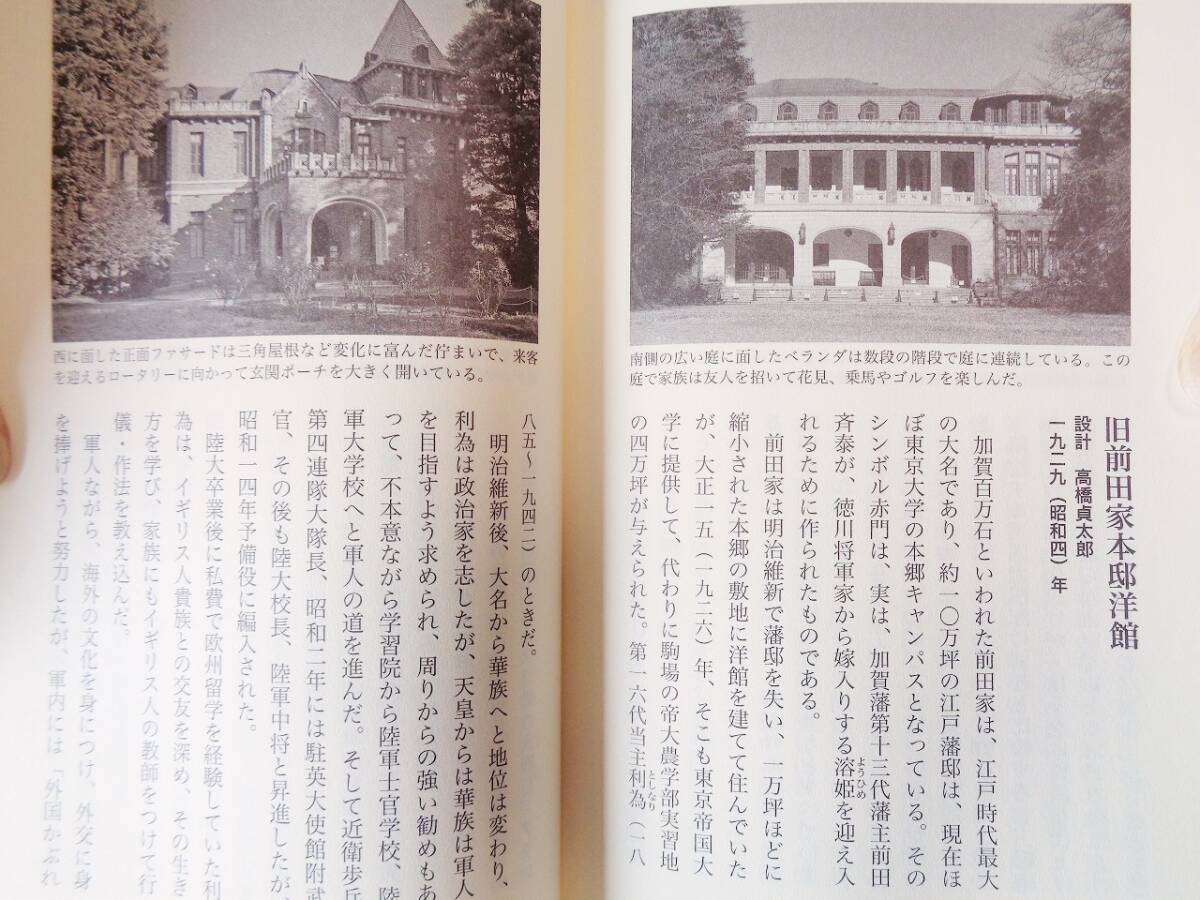 南側の広い庭に面したベランダは数段の階段で庭に連続している。この
庭で家族は友人を招いて花見、乗馬やゴルフを楽しんだ。
旧前田家本邸洋館
設計　高橋貞太郎
一九二九（昭和四）年
加賀百万石といわれた前田家は、江戸時代最大
の大名であり、約一〇万坪の江戸藩邸は、現在ほ
ぼ東京大学の本郷キャンパスとなっている。その
シンボル赤門は、実は、加賀藩第十三代藩主前田
斉泰が、徳川将軍家から嫁入りする溶姫を迎え入
ようひめ
れるために作られたものである。
前田家は明治維新で藩邸を失い、一万坪ほどに
縮小された本郷の敷地に洋館を建てて住んでいた
が、大正一五（一九二六）年、そこも東京帝国大
学に提供して、代わりに駒場の帝大農学部実習地
の四万坪が与えられた。第一六代当主利為（一八
としなり
西に面した正面ファサードは三角屋根など変化に富んだ佇まいで、来客
を迎えるロータリーに向かって玄関ポーチを大きく開いている。
八五〜一九四二）のときだ。
明治維新後、大名から華族へと地位は変わり、
利為は政治家を志したが、天皇からは華族は軍人
を目指すよう求められ、周りからの強い勧めもあ
って、不本意ながら学習院から陸軍士官学校、陸
軍大学校へと軍人の道を進んだ。そして近衛歩兵
第四連隊大隊長、昭和二年には駐英大使館附武
官、その後も陸大校長、陸軍中将と昇進したが、
昭和一四年予備役に編入された。
陸大卒業後に私費で欧州留学を経験していた利
為は、イギリス人貴族との交友を深め、その生き
方を学び、家族にもイギリス人の教師をつけて行
儀・作法を教え込んだ。
軍人ながら、海外の文化を身につけ、外交に身
を捧げようと努力したが、軍内には「外国かぶれ